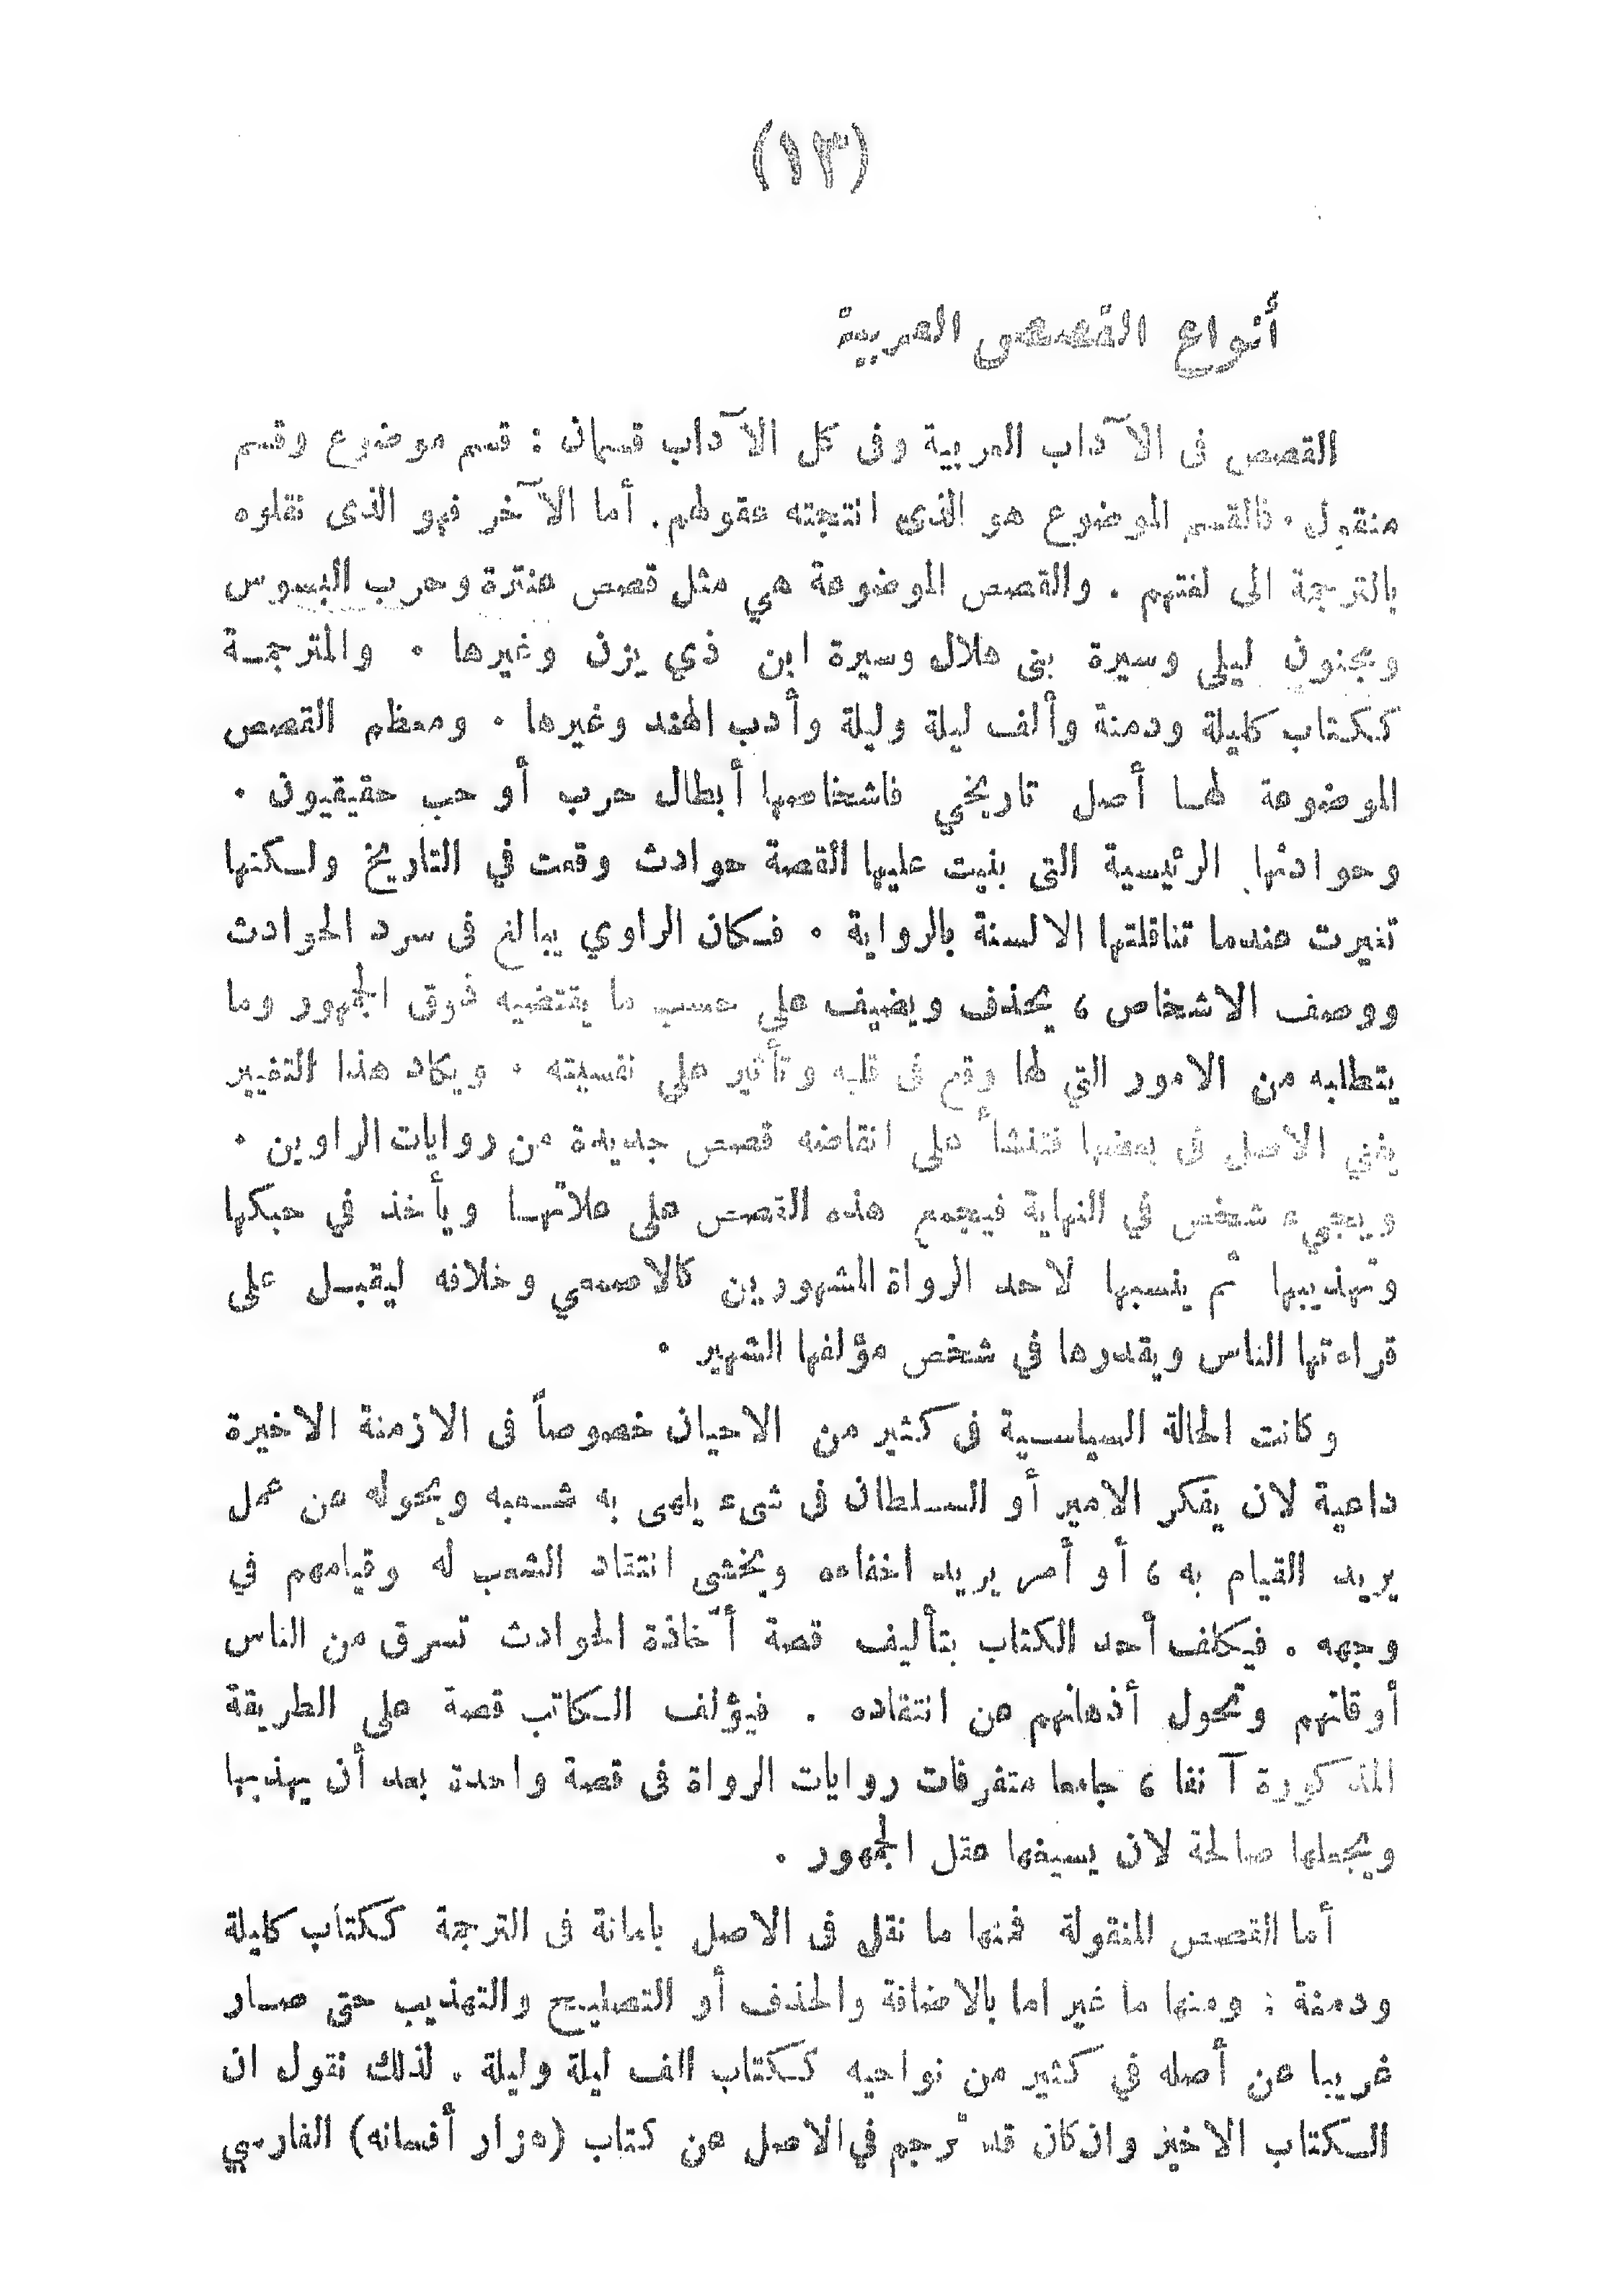 (١٣)
أنواع القصص العربية
القصص فى الآداب العربية وفى كل الآداب قسمان : قسم موضوع وقسم
منقول . فالقسم الموضوع هو الذى انتجته عقولهم. أما الآخر فهو الذى نقلوه
بالترجمة الى لغتهم . والقصص الموضوعة هي مثل قصص عنترة وحرب البسوس
ومجنون ليلى وسيرة بنى هلال وسيرة ابن ذي يزن وغيرها . والمترجمة
ككتاب كليلة ودمنة وألف ليلة وليلة وأدب الهند وغيرها . ومعظم القصص
الموضوعة لها أصل تاريخي فاشخاصها أبطال حرب أو حب حقيقيون .
وحوادثها الرئيسية التى بنيت عليها القصة حوادث وقعت في التاريخ ولكنها
تغيرت عندما تناقلتها الالسنة بالرواية . فكان الراوي يبالغ فى سرد الحوادث
ووصف الاشخاص ، يحذف ويضيف على حسب ما يقتضيه ذوق الجمهور وما
يتطلبه من الامور التي لها وقع فى قلبه وتأثير على نفسيته . ويكاد هذا التغيير
يفني الاصل فى بعضها فتنشأ على انقاضه قصص جديدة من روايات الراوين .
ويجيء شخص في النهاية فيجمع هذه القصص على علاتها ويأخذ في حبكها
وتهذيبها ثم ينسبها لاحد الرواة المشهورين كالاصمعي وخلافه ليقبل على
قراءتها الناس ويقدروها في شخص مؤلفها الشهير .
وكانت الحالة السياسية فى كثير من الاحيان خصوصاً فى الازمنة الاخيرة
داعية لان يفكر الامير أو السلطان فى شىء يلهى به شعبه ويحوله عن عمل
يريد القيام به ، أو أمر يريد اخفاءه ويخشى انتقاد الشعب له وقيامهم في
وجهه . فيكلف أحد الكتاب بتأليف قصة أخّاذة الحوادث تسرق من الناس
أوقاتهم وتحول أذهانهم عن انتقاده . فيؤلف الكاتب قصة على الطريقة
المذكورة آنفا ، جامعا متفرقات روايات الرواة فى قصة واحدة بعد أن يهذبها
ويجعلها صالحة لان يسيغها عقل الجمهور .
أما القصص المنقولة فمنها ما نقل فى الاصل بامانة فى الترجمة ككتاب كليلة
ودمنة : ومنها ما غير اما بالاضافة والحذف أو التصليح والتهذيب حتى صار
غريبا عن أصله في كثير من نواحيه ككتاب الف ليلة وليلة . لذلك نقول ان
الكتاب الاخير وان كان قد ترجم في الاصل عن كتاب (هزار أفسانه) الفارسي